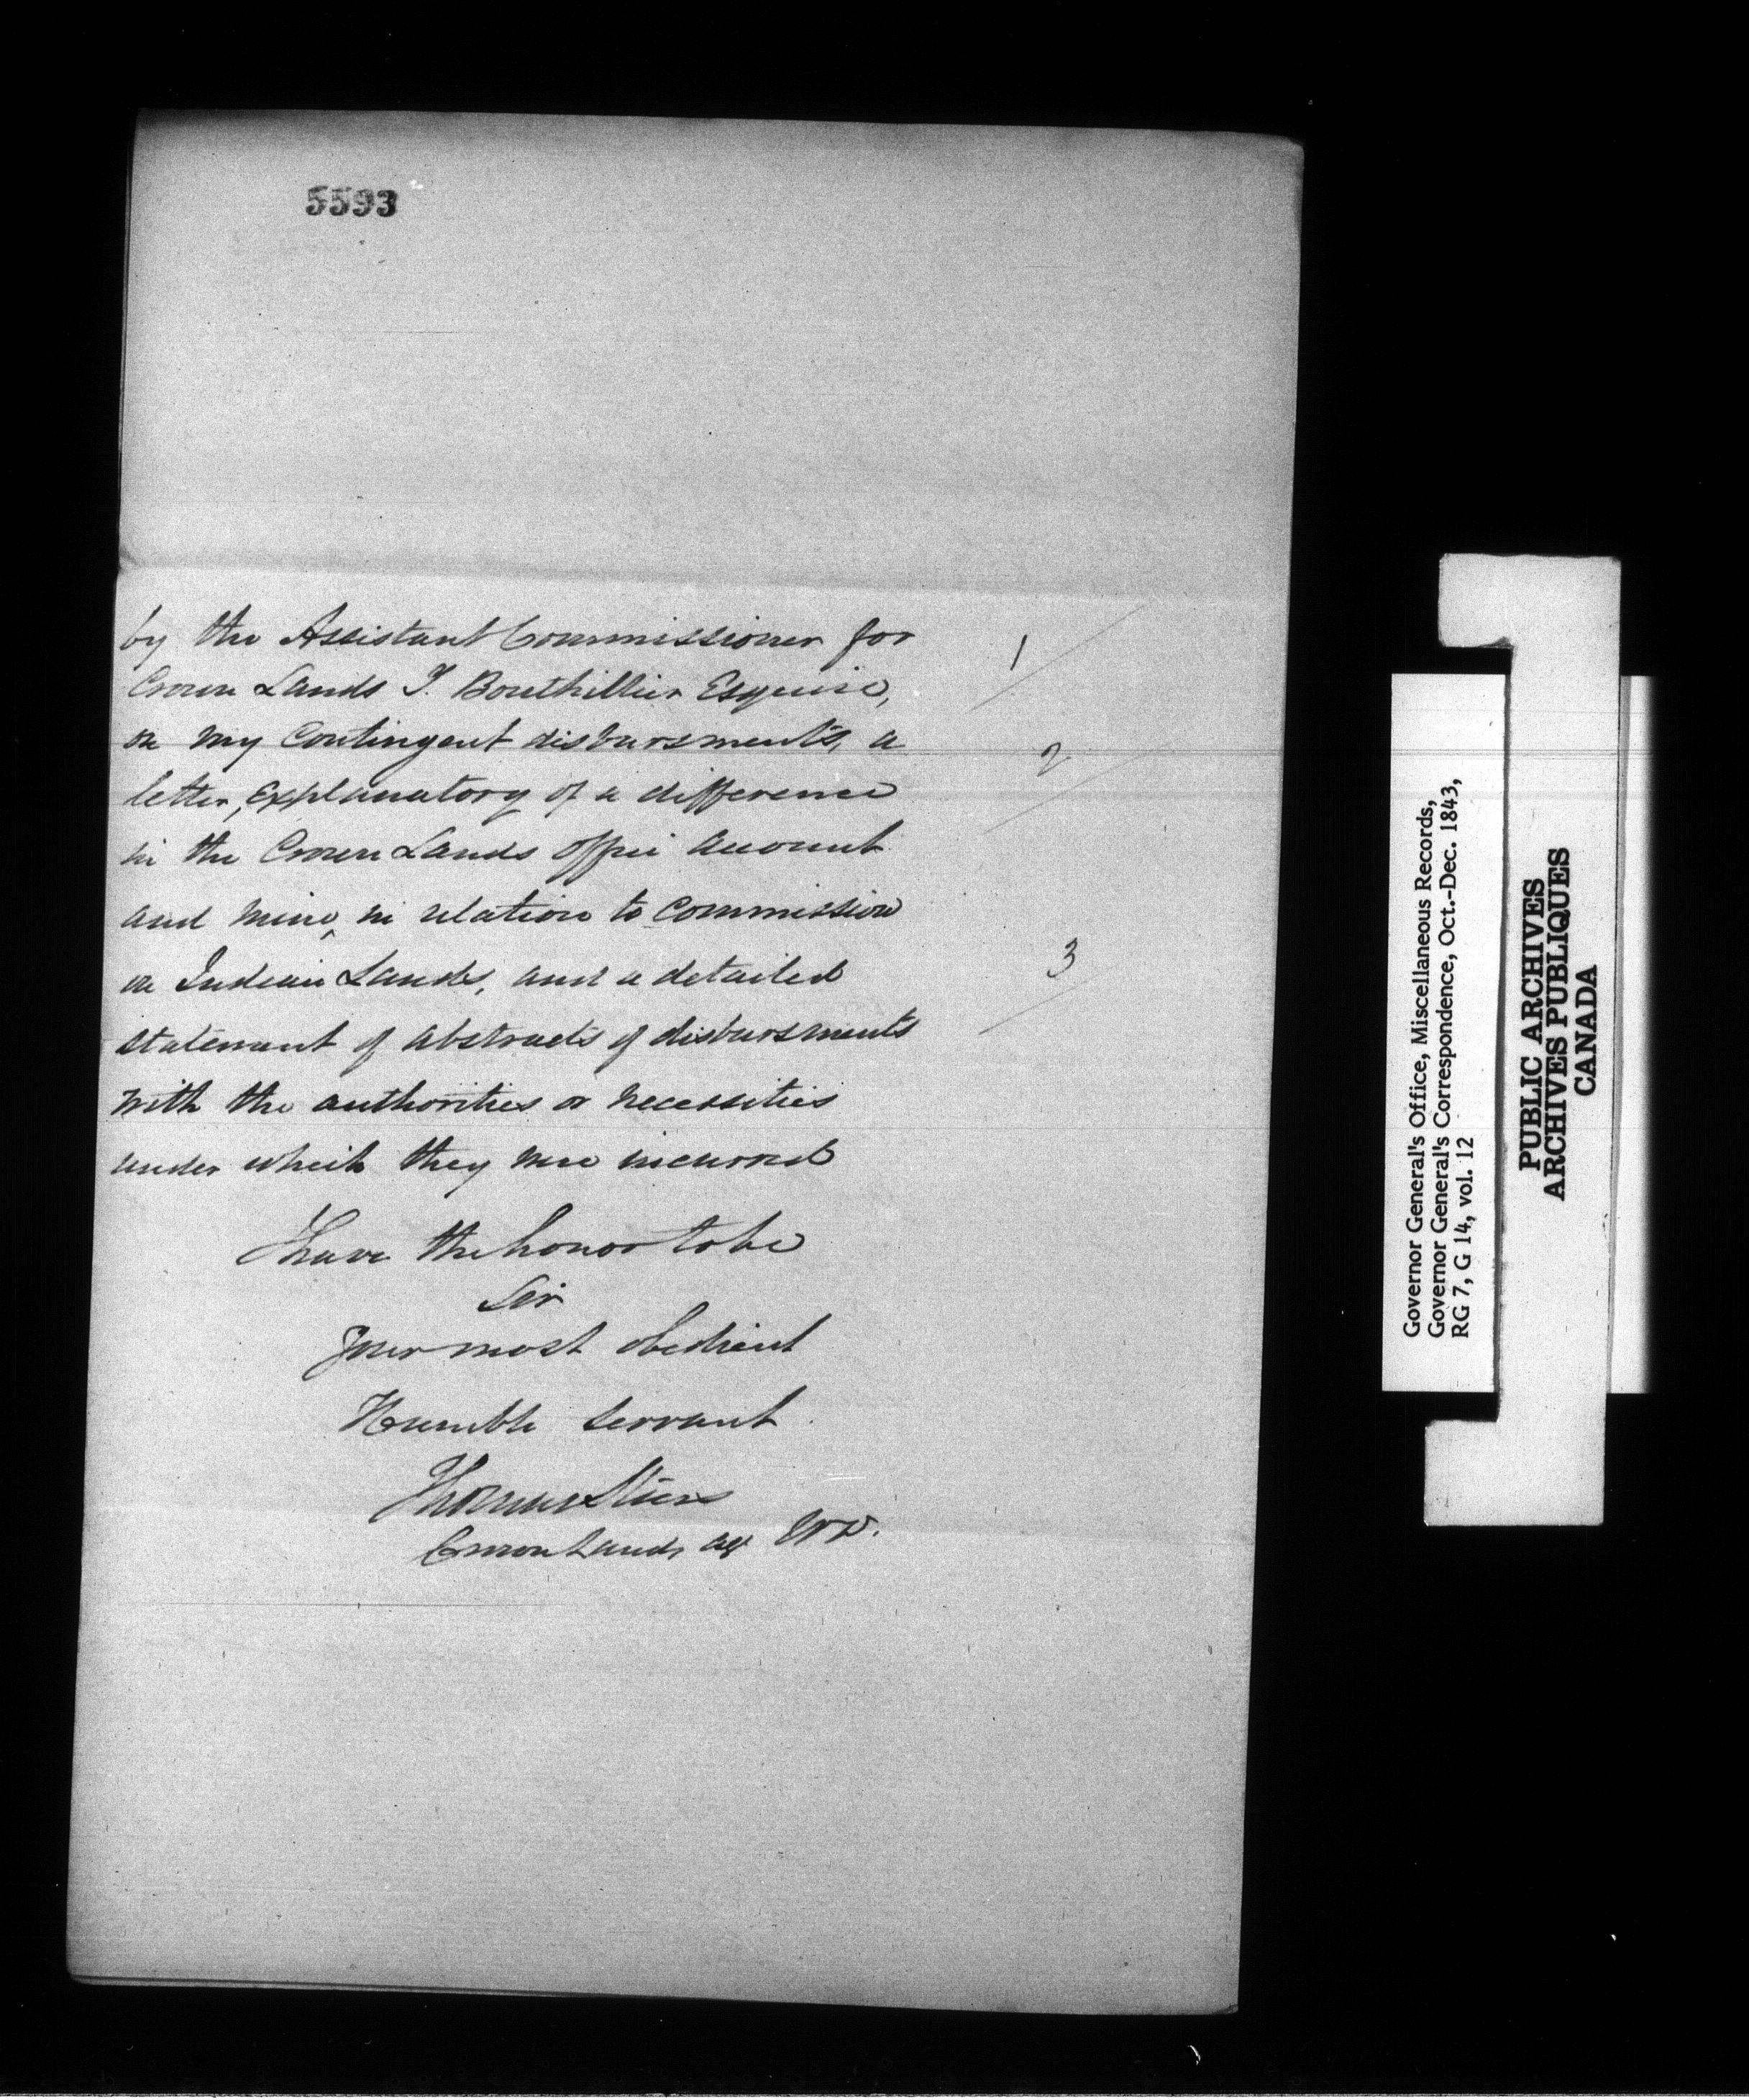 5593
by the Assistant Commissioner for
Crown Lands T. Bouthillier Esquire,
on my Contingent disbursments, a
letter, Explanatory of a difference
in the Crown Lands Office account
and mine, in relation to Commission
on Indian Lands, and a detailed
statement of abstracts of disbursments
with the authorities or necessities
under which they were incurred
1
2
3
I have the honor to be
Sir
Your most obedient
Humble Servant
Thomas Steers
Crown Lands ag
Governor General's Office, Miscellaneous Records,
Governor General's Correspondence, Oct.-Dec. 1843,
RG 7, G 14, vol. 12
PUBLIC ARCHIVES
ARCHIVES PUBLIQUES
CANADA